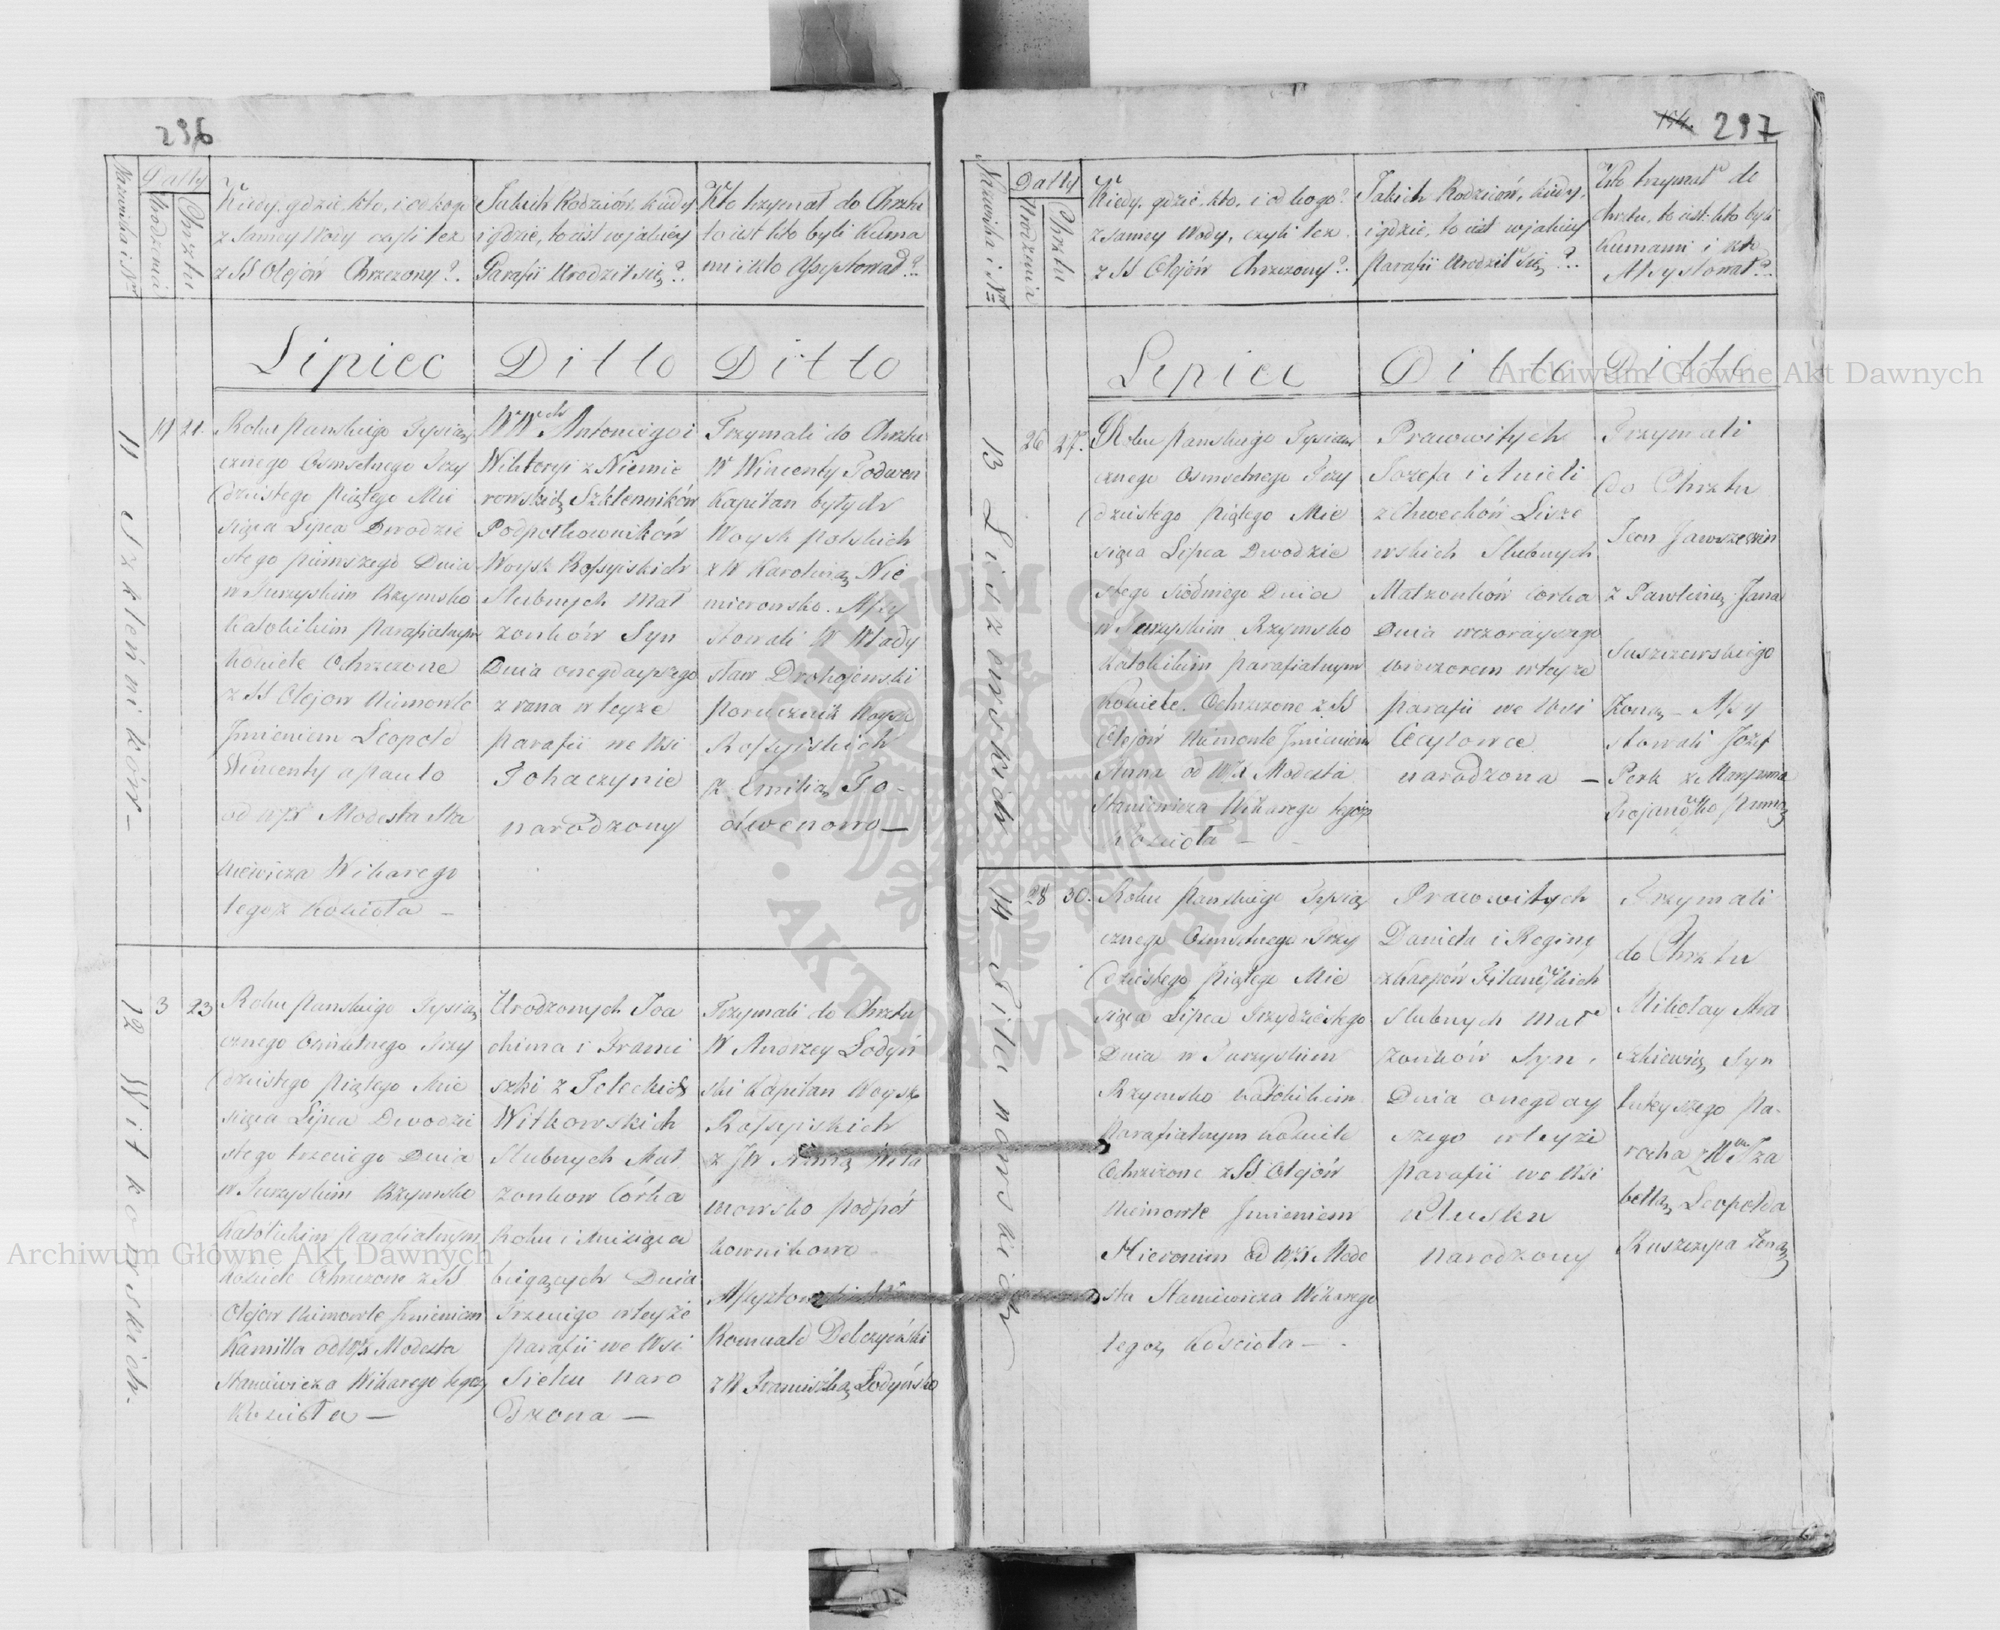 296
Nazwiska i Nr
Datty
Urodzenia
Chrztu
Kiedy, gdzie, kto, i od kogo
z samey Wody czyli tez
z SS Olejów Chrzczony?
Jakich Rodziców, kiedy
i gdzie, to iest w jakiey
Parafii Urodził się?
Kto trzymał do Chrztu
to iest kto byli Kuma
mi i kto Assystował?
Lipiec
Ditto
Ditto
11 Szklenników
19
21
Roku Pańskiego Tysiąc
cznego Osmsetnego Trzy
dziestego Piątego Mie
siąca Lipca Dwodzie
stego pierwszego Dnia
w Turzyskim Rzymsko
Katolickim Parafialnym
Kościele Ochrzczone
z SS Olejow Niemowle
Imieniem Leopold
Wincenty a Paulo
od WJX Modesta Sta
niewicza Wikarego
tegoż Kościoła
WWch Antoniego i
Wiktoryi z Niemie
rowskich Szklenników
Podpółkowników
Woysk Rossyiskich
Slubnych Mał
zonków Syn
Dnia onegdayszego
z rana w teyze
parafii we Wsi
Tohaczynie
narodzony
Trzymali do Chrztu
W Wincenty Todwen
Kapitan byłych
Woysk polskich
z W Karoliną Nie
mierowsko. Assy
stowali W Włady
sław Drohojewski
Porucznik Woysk
Rossyiskich
z Emilią To-
dwenowo
12 Witkowskich.
3
23
Roku Pańskiego Tysiąc
cznego Osmsetnego Trzy
dziestego Piątego Mie
siąca Lipca Dwodzie
stego trzeciego Dnia
w Turzyskim Rzymsko
Katolickim Parafialnym
Kościele Ochrzczone z SS
Olejow Niemowle Imieniem
Kamilla od WJX Modesta
Staniewicza Wikarego tegoż
Kościoła
Urodzonych Joa
chima i Franci
szki z Teleckich
Witkowskich
Slubnych Mał
zonkow Córka
Roku i Miesiąca
bieżących Dnia
Trzeciego w teyże
Parafii we Wsi
naro
dzona
Trzymali do Chrztu
W Andrzey Łodyń
ski Kapitan Woysk
Rossyiskich
z JW Anną
mowsko Podpół
kowniková
Romuald Delczyński
z W Franciszką Łodyńsko
297
Nazwiska i Nr
Datty
Urodzenia
Chrztu
Kiedy, gdzie, kto, i od kogo?
z samey Wody, czyli tez
z SS Olejów Chrzczony?
Jakich Rodziców, kiedy,
i gdzie, to iest w jakiey
parafii Urodził się?
Kto trzymał do
Chrztu, to iest kto byli
kumami i kto
Assystował?
Lipiec
Ditto
Ditto
13 Liszewskich
26
27.
Roku Pańskiego Tysiąc
cznego Osmsetnego Trzy
dziestego piątego Mie
siąca Lipca Dwodzie
stego siódmego Dnia
w Turzyskim Rzymsko
Katolickim parafialnym
Kościele Ochrzczone z SS
Olejów Niemowle Imieniem
Anna od WJX Modesta
Staniewicza Wikarego tegoż
Kościoła
Prawowitych
Jozefa i Anieli
z Chwechów Lisze
wskich Slubnych
Małzonków Corka
Dnia wczorayszego
wieczorem w teyze
parafii we Wsi
Cecylowce
narodzona
Trzymali
do Chrztu
z Pawliną Jana
Suszczewskiego
Zoną Assy
stowali Józef
14
28
30.
Roku Pańskiego Tysiąc
cznego Osmsetnego Trzy
dziestego Piątego Mie
siąca Lipca Trzydziestego
Dnia w Turzyskim
Rzymsko Katolickim
Parafialnym Kościele
Ochrzczone z SS Olejów
Niemowle Imieniem
Hieronim od WJX Mode
sta Staniewicza Wikarego
tegoż Kościoła
Prawowitych
Daniela i Reginy
Slubnych Mał
zonków Syn
Dnia onegday
szego w teyże
parafii we Wsi
narodzony
Trzymali
do Chrztu
Mikołay
Syn
tuteyszego Pa-
rocha z
Leopolda
Ruszczyca Zoną
Archiwum Główne Akt Dawnych
Archiwum Główne Akt Dawnych
ARCHIWUM GŁÓWNE AKT DAWNYCH